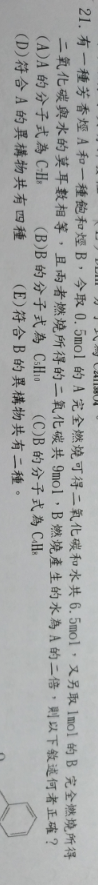 21. 有一種芳香烴 A 和一種飽和烴 B，今取 0.5mol 的 A 完全燃燒可得二氧化碳和水共 6.5mol，又另取 1mol 的 B 完全燃燒所得
二氧化碳與水的莫耳數相等，且兩者燃燒所得的二氧化碳共 9mol，B 燃燒產生的水為 A 的二倍，則以下敘述何者正確？
(A)A 的分子式為 C₇H₈ (B)B 的分子式為 C₅H₁₀ (C)B 的分子式為 C₆H₈
(D)符合 A 的異構物共有四種 (E)符合 B 的異構物共有二種。